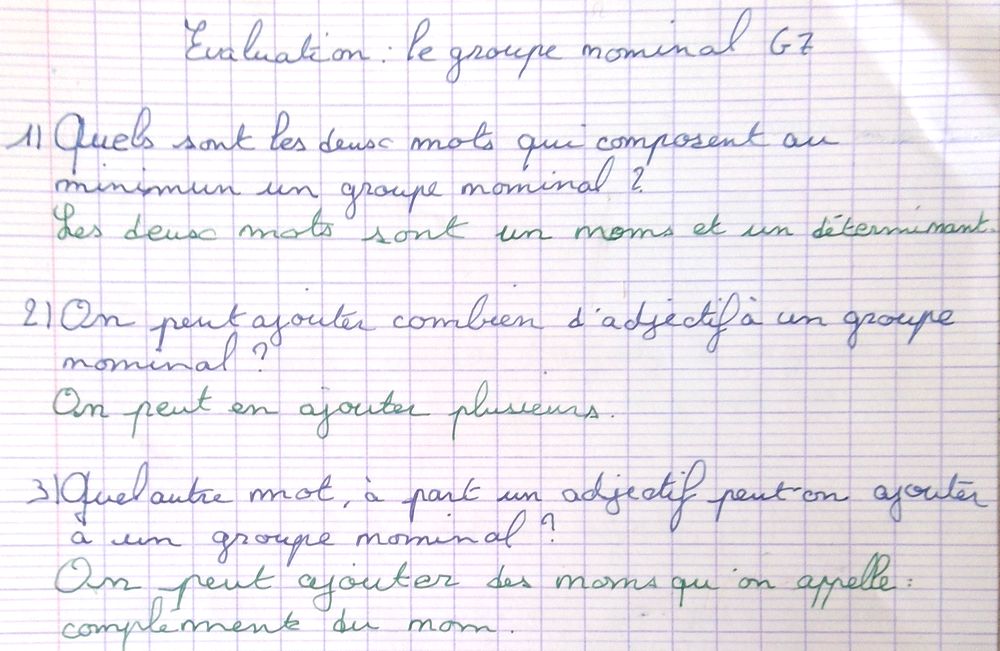 Evaluation : le groupe nominal G7
1) Quels sont les deux mots qui composent au
minimun un groupe nominal ?
Les deux mots sont un noms et un déterminant.
2) On peut ajouter combien d'adjectif à un groupe
nominal ?
On peut en ajouter plusieurs.
3) Quel autre mot, à part un adjectif peut-on ajouter
à un groupe nominal ?
On peut ajouter des noms qu'on appelle :
complements du nom.